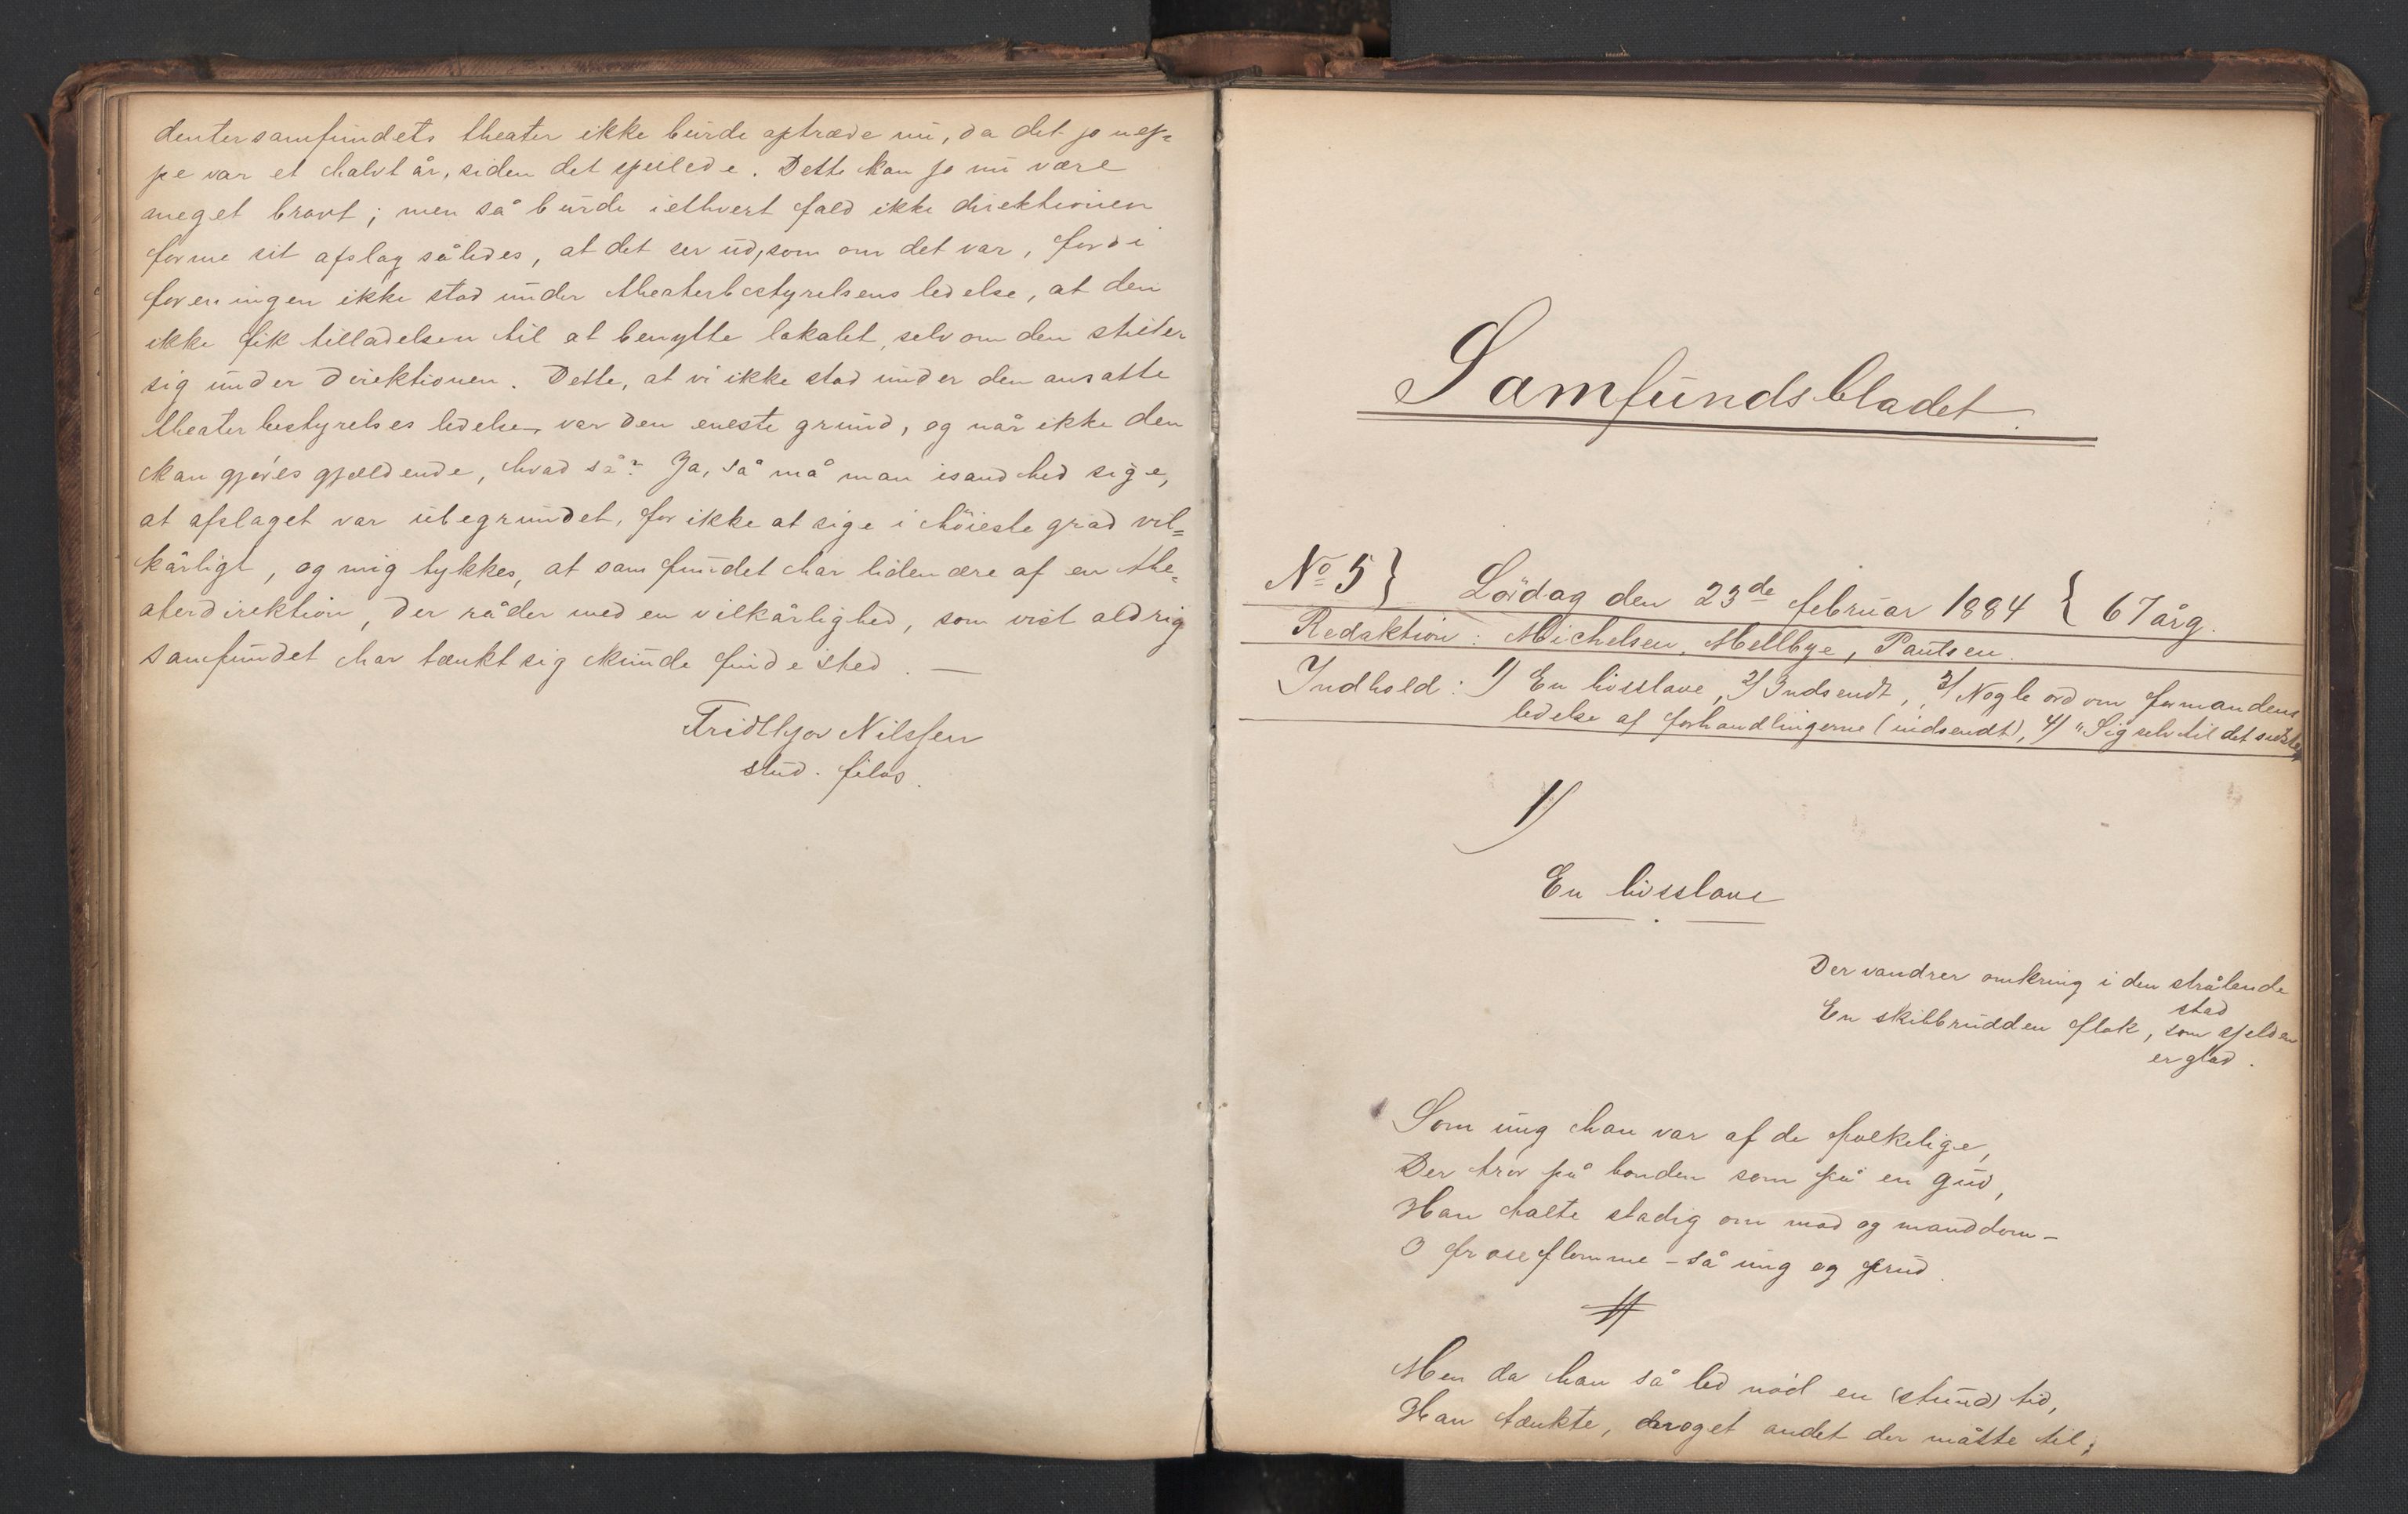 dentersamfundets theater ikke burde optræde nu, da det jo nep=
pe var et halvt år, siden det spillede. Dette kan jo nu være
meget bravt; men så burde i ethvert fald ikke direktionen
forme sit afslag således, at det ser ud, som om det var, fordi
foreningen ikke stod under theaterbestyrelsens ledelse, at den
ikke fik tilladelsen til at benytte lokalet, selv om den stiller
sig under direktionen. Dette, at vi ikke stod under den ansatte
theaterbestyrelses ledelse, var den eneste grund, og når ikke den
kan gjøres gjældende, hvad så? Ja, så må man isandhed sige,
at afslaget var ubegrundet, for ikke at sige i høieste grad vil=
kårligt, og mig tykkes, at samfundet har liden ære af en the=
aterdirektion, der råder med en vilkårlighed, som vist aldrig
samfundet har tænkt sig kunde finde sted. —
Fridthjov Nilssen
stud. filos.
Samfundsbladet.
No 5} Lördag den 23de februar 1884 { 67 årg.
Redaktion: Michelsen, Mellbye, Paulsen.
Indhold: 1) En livsslave, 2) Indsendt, 3) Nogle ord om formandens
ledelse af forhandlingerne (indsendt), 4) "Sig selv til det sidste"
1)
En livsslave
Der vandrer omkring i den strålende
stad
En skibbrudden flok, som sjelden
er glad.
Som ung han var af de folkelige,
Der tror på bonden som på en gud,
Han talte stadig om mod og manddom –
O fraseflomme – så ung og prud.
Men da han så led nød en (stund) tid,
Han tænkte, noget andet der måtte til;